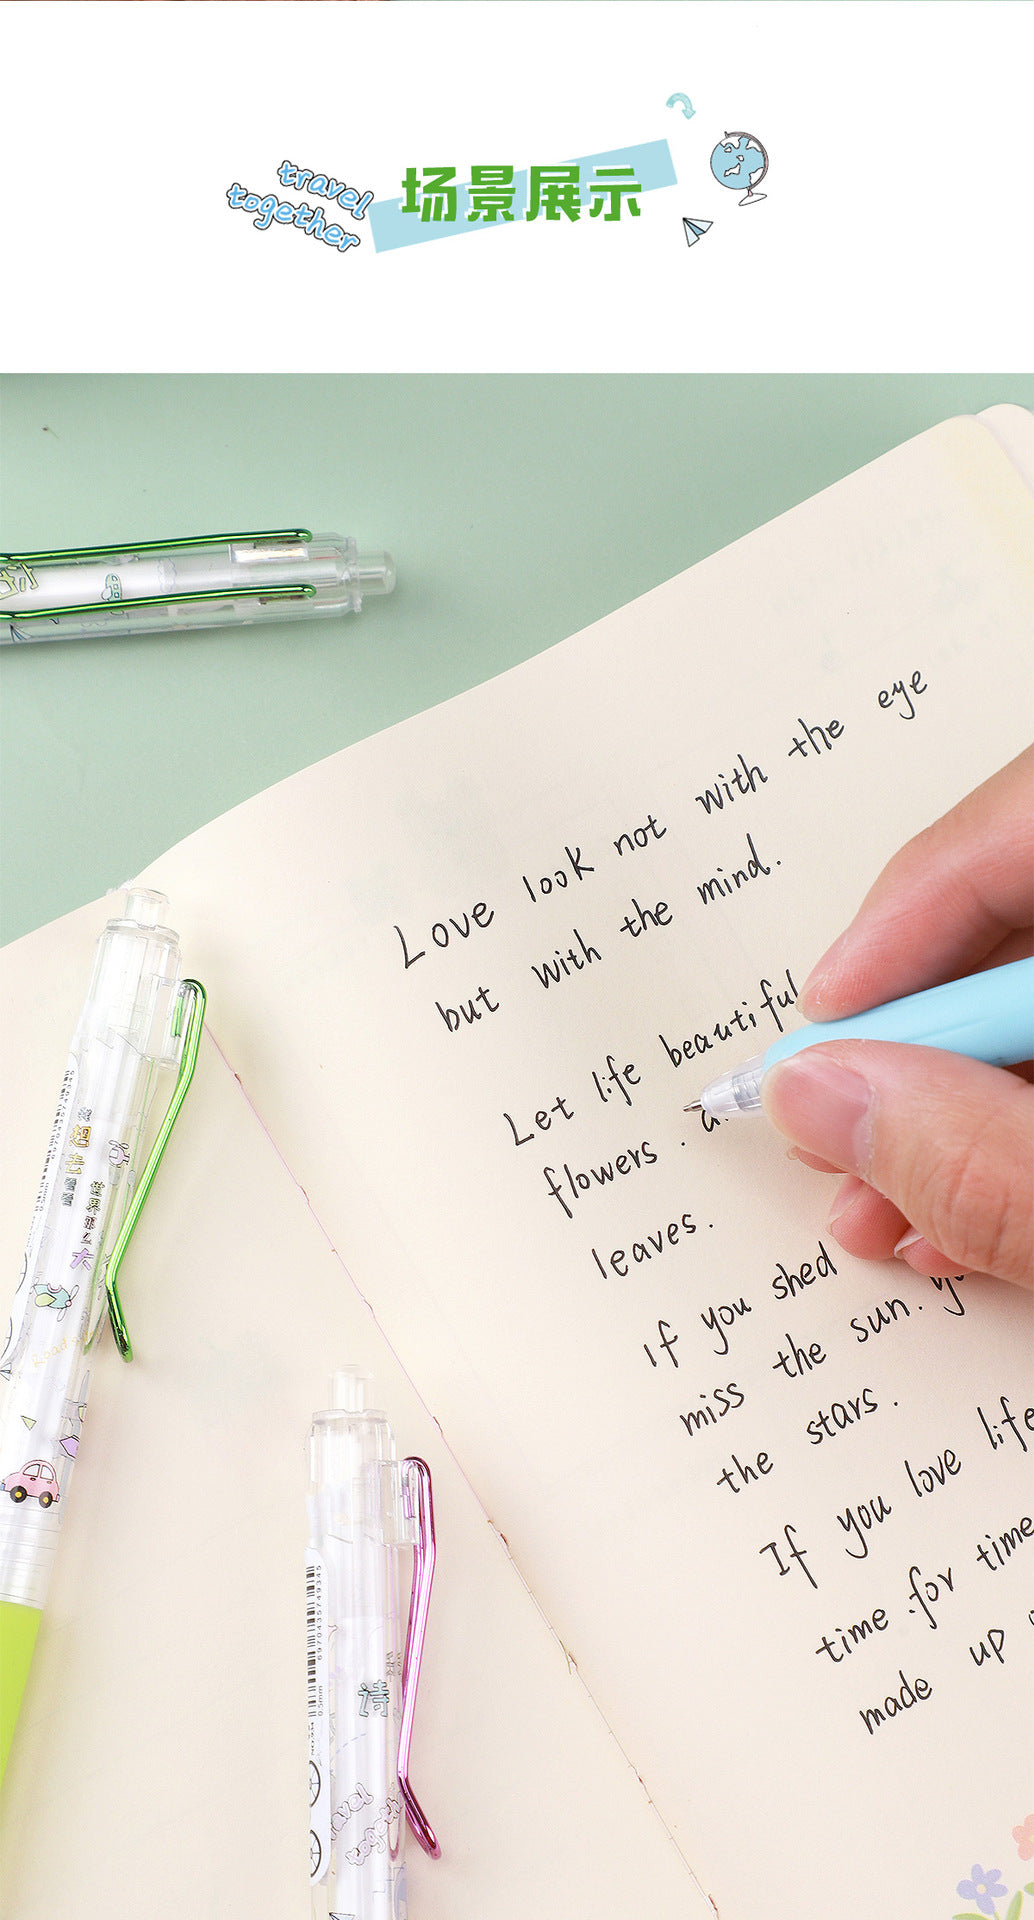 travel
together
场景展示
Love look not with the eye
but with the mind.
Let life beautiful
flowers.
leaves.
If you shed
miss the sun. yo
the stars.
If you love life
time.for time
made up
世界那么大
Road
6970435749345
0.5mm
诗
travel
together